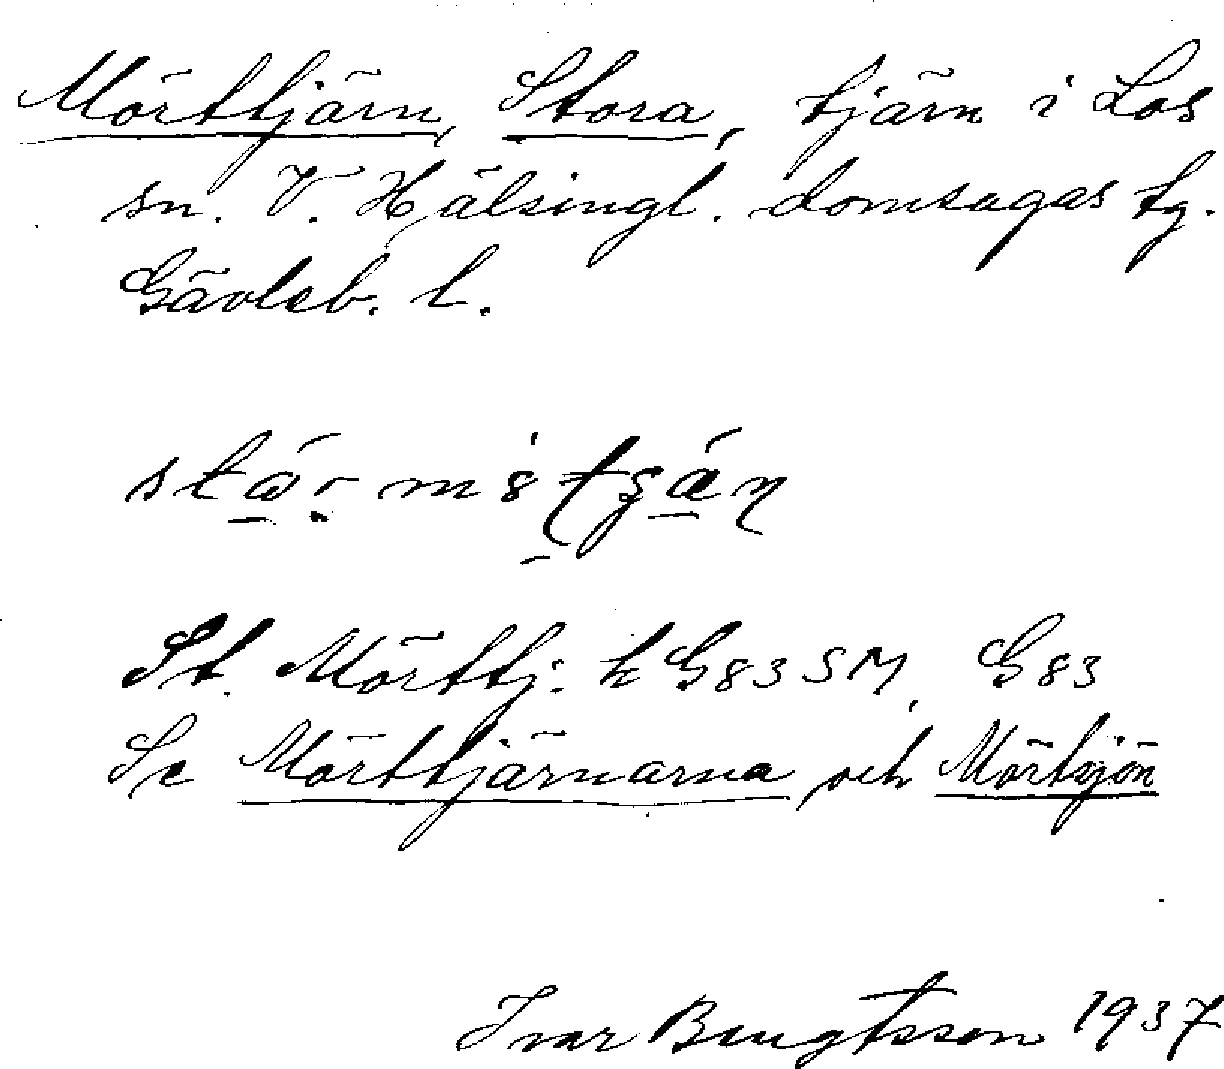 Mörttjärn, Stora, tjärn i Los
sn. V. Hälsingl. domsagas tg.
Gävleb. l.
St. Mörttj. k G83SM, G83
Se Mörttjärnarna och Mörtsjön
Ivar Bengtsson 1937